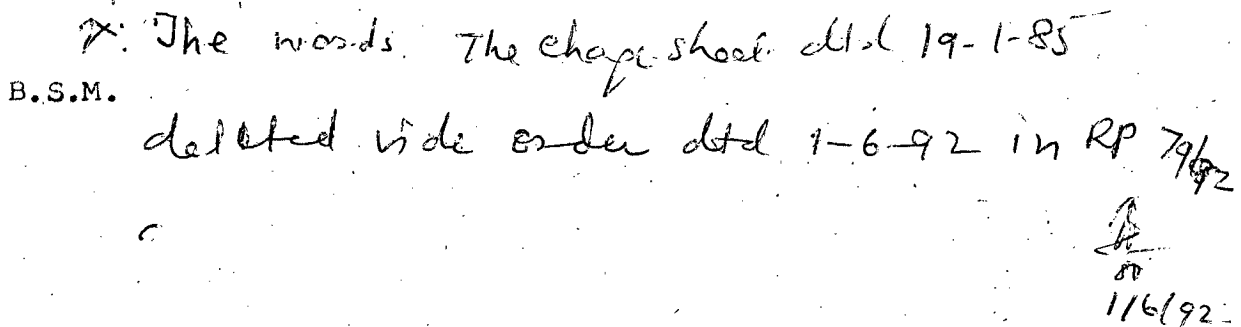 x. The words. The charge sheet dtd 19-1-85
B.S.M.
deleted vide order dtd 1-6-92 in RP 79/92
so
1/6/92